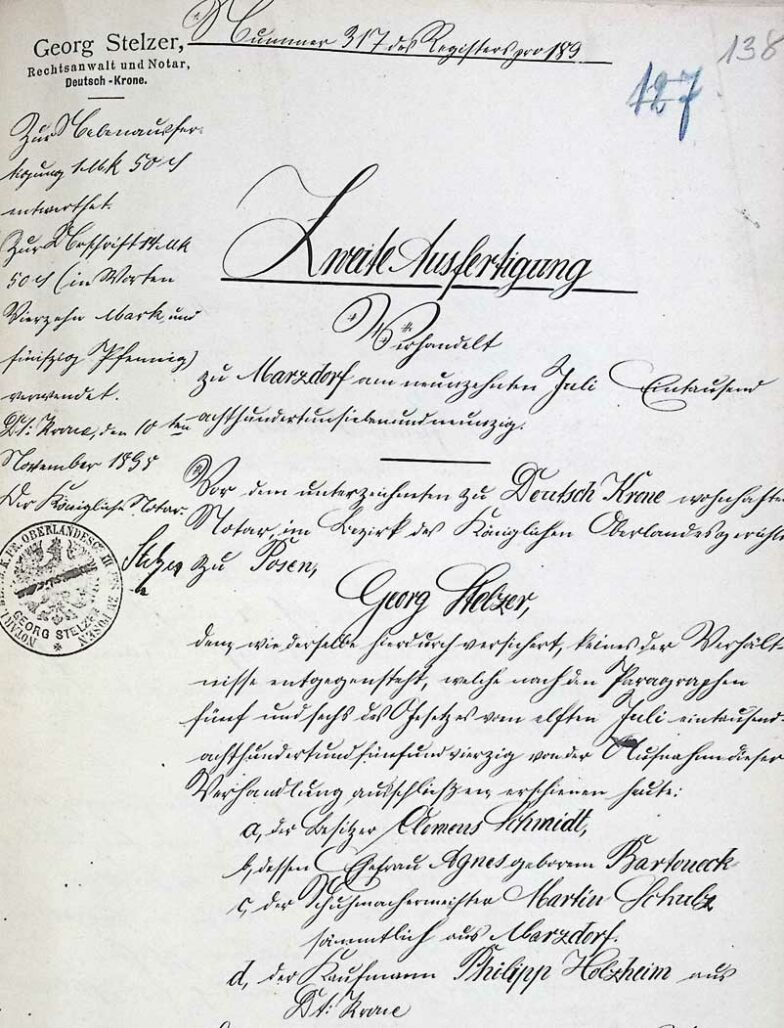 Nummer 317 des Registers pro 189
138
127
Georg Stelzer,
Rechtsanwalt und Notar,
Deutsch-Krone.
Zur Nebenausfer-
tigung 1 Mk 50 ₰
entwerthet.
Zur Urschrift 14 Mk
50 ₰ (in Worten
Vierzehn Mark und
fünfzig Pfennig)
verwendet.
Dt: Krone, den 10 ten
November 189
Der Königliche Notar.
Stelzer
NOTAR I. BEZ. D. K. PR. OBERLANDESGERICHTES ZU POSEN
GEORG STELZER
Zweite Ausfertigung
Verhandelt
zu Marzdorf am neunzehnten Juli Eintausend
achthundertundsiebenundneunzig.
Vor dem unterzeichneten zu Deutsch Krone wohnhaften
Notar, im Bezirk des Königlichen Oberlandesgerichts
zu Posen,
Georg Stelzer,
dem, wie derselbe hierdurch versichert, keines der Verhält-
nisse entgegensteht, welche nach den Paragraphen
fünf und sechs des Gesetzes vom elften Juli eintausend-
achthundertundfünfundvierzig von der Aufnahme dieser
Verhandlung ausschließen, erschienen heute:
a, der Besitzer Clemens Schmidt,
b, dessen Ehefrau Agnes geborene Bartoneck
c, der Schuhmachermeister Martin Schulz
sämmtlich aus Marzdorf.
d, der Kaufmann Philipp Holzheim aus
Dt: Krone